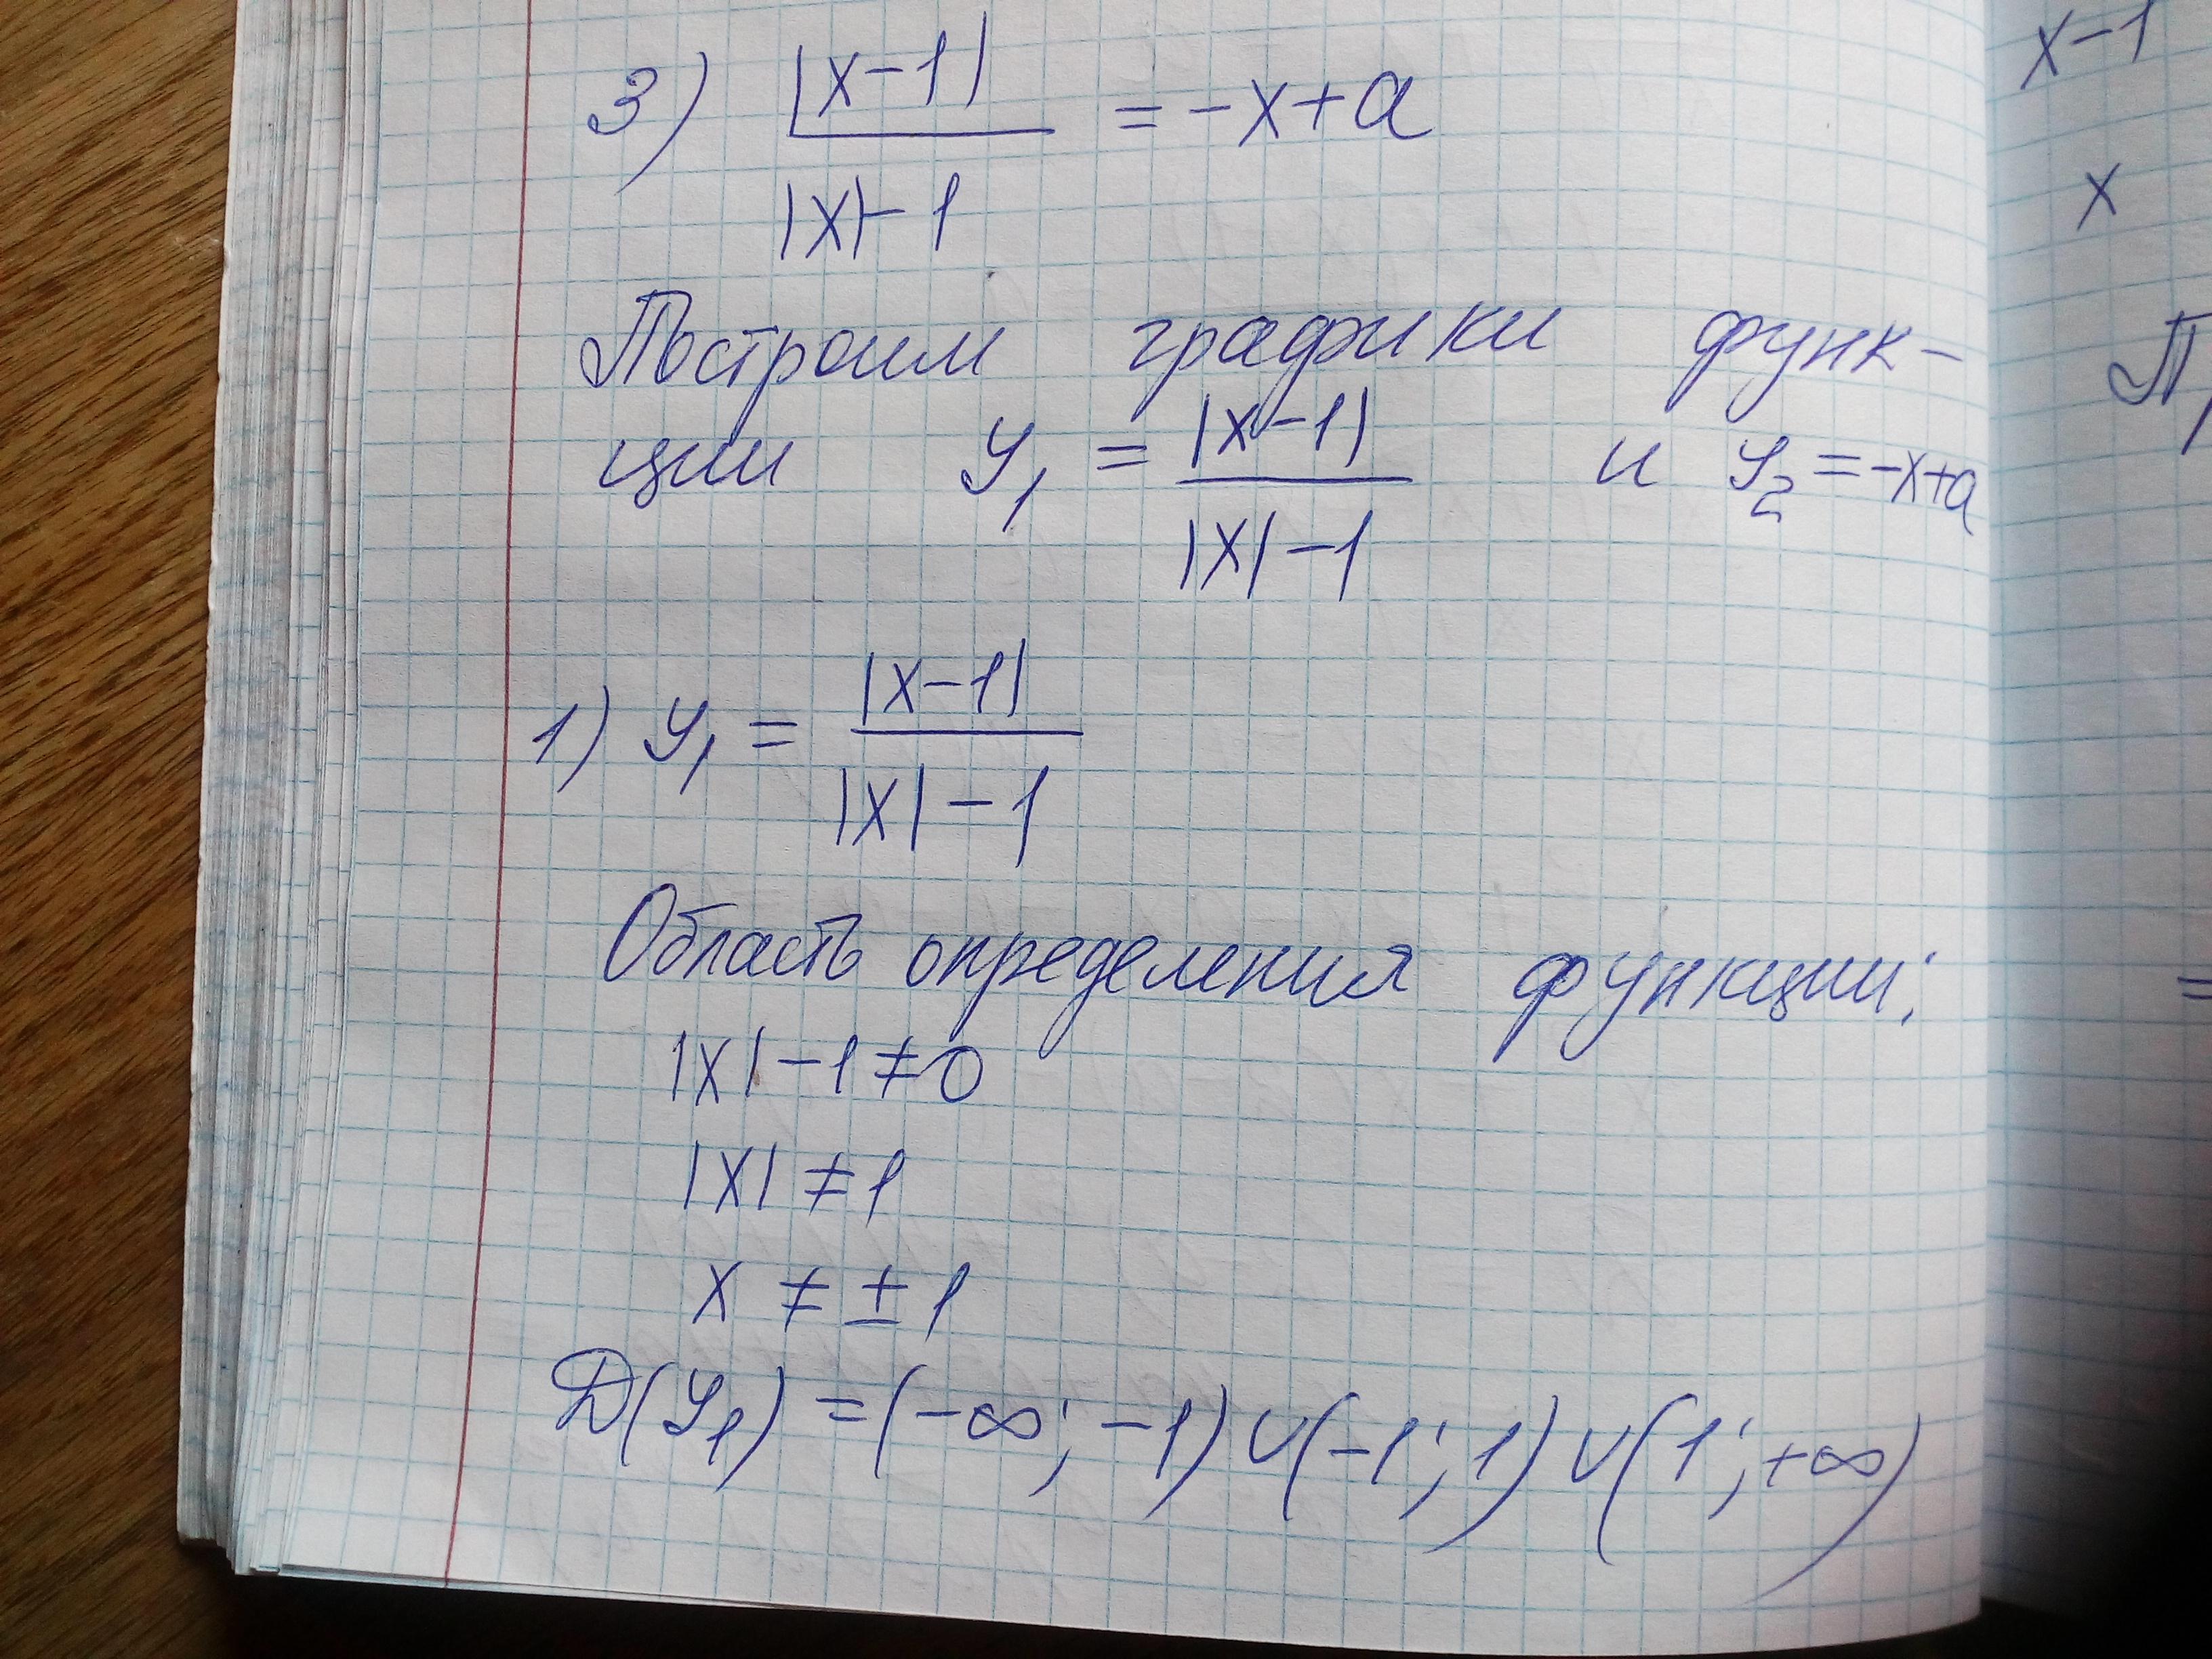 3) |x-1| / |x|-1 = -x+a
Построим графики функ-
ции y₁ = |x-1| / |x|-1 и y₂=-x+a
1) y₁ = |x-1| / |x|-1
Область определения функции:
|x|-1≠0
|x|≠1
x ≠ ±1
D(y₁)=(-∞;-1)∪(-1;1)∪(1;+∞)
x-1
x